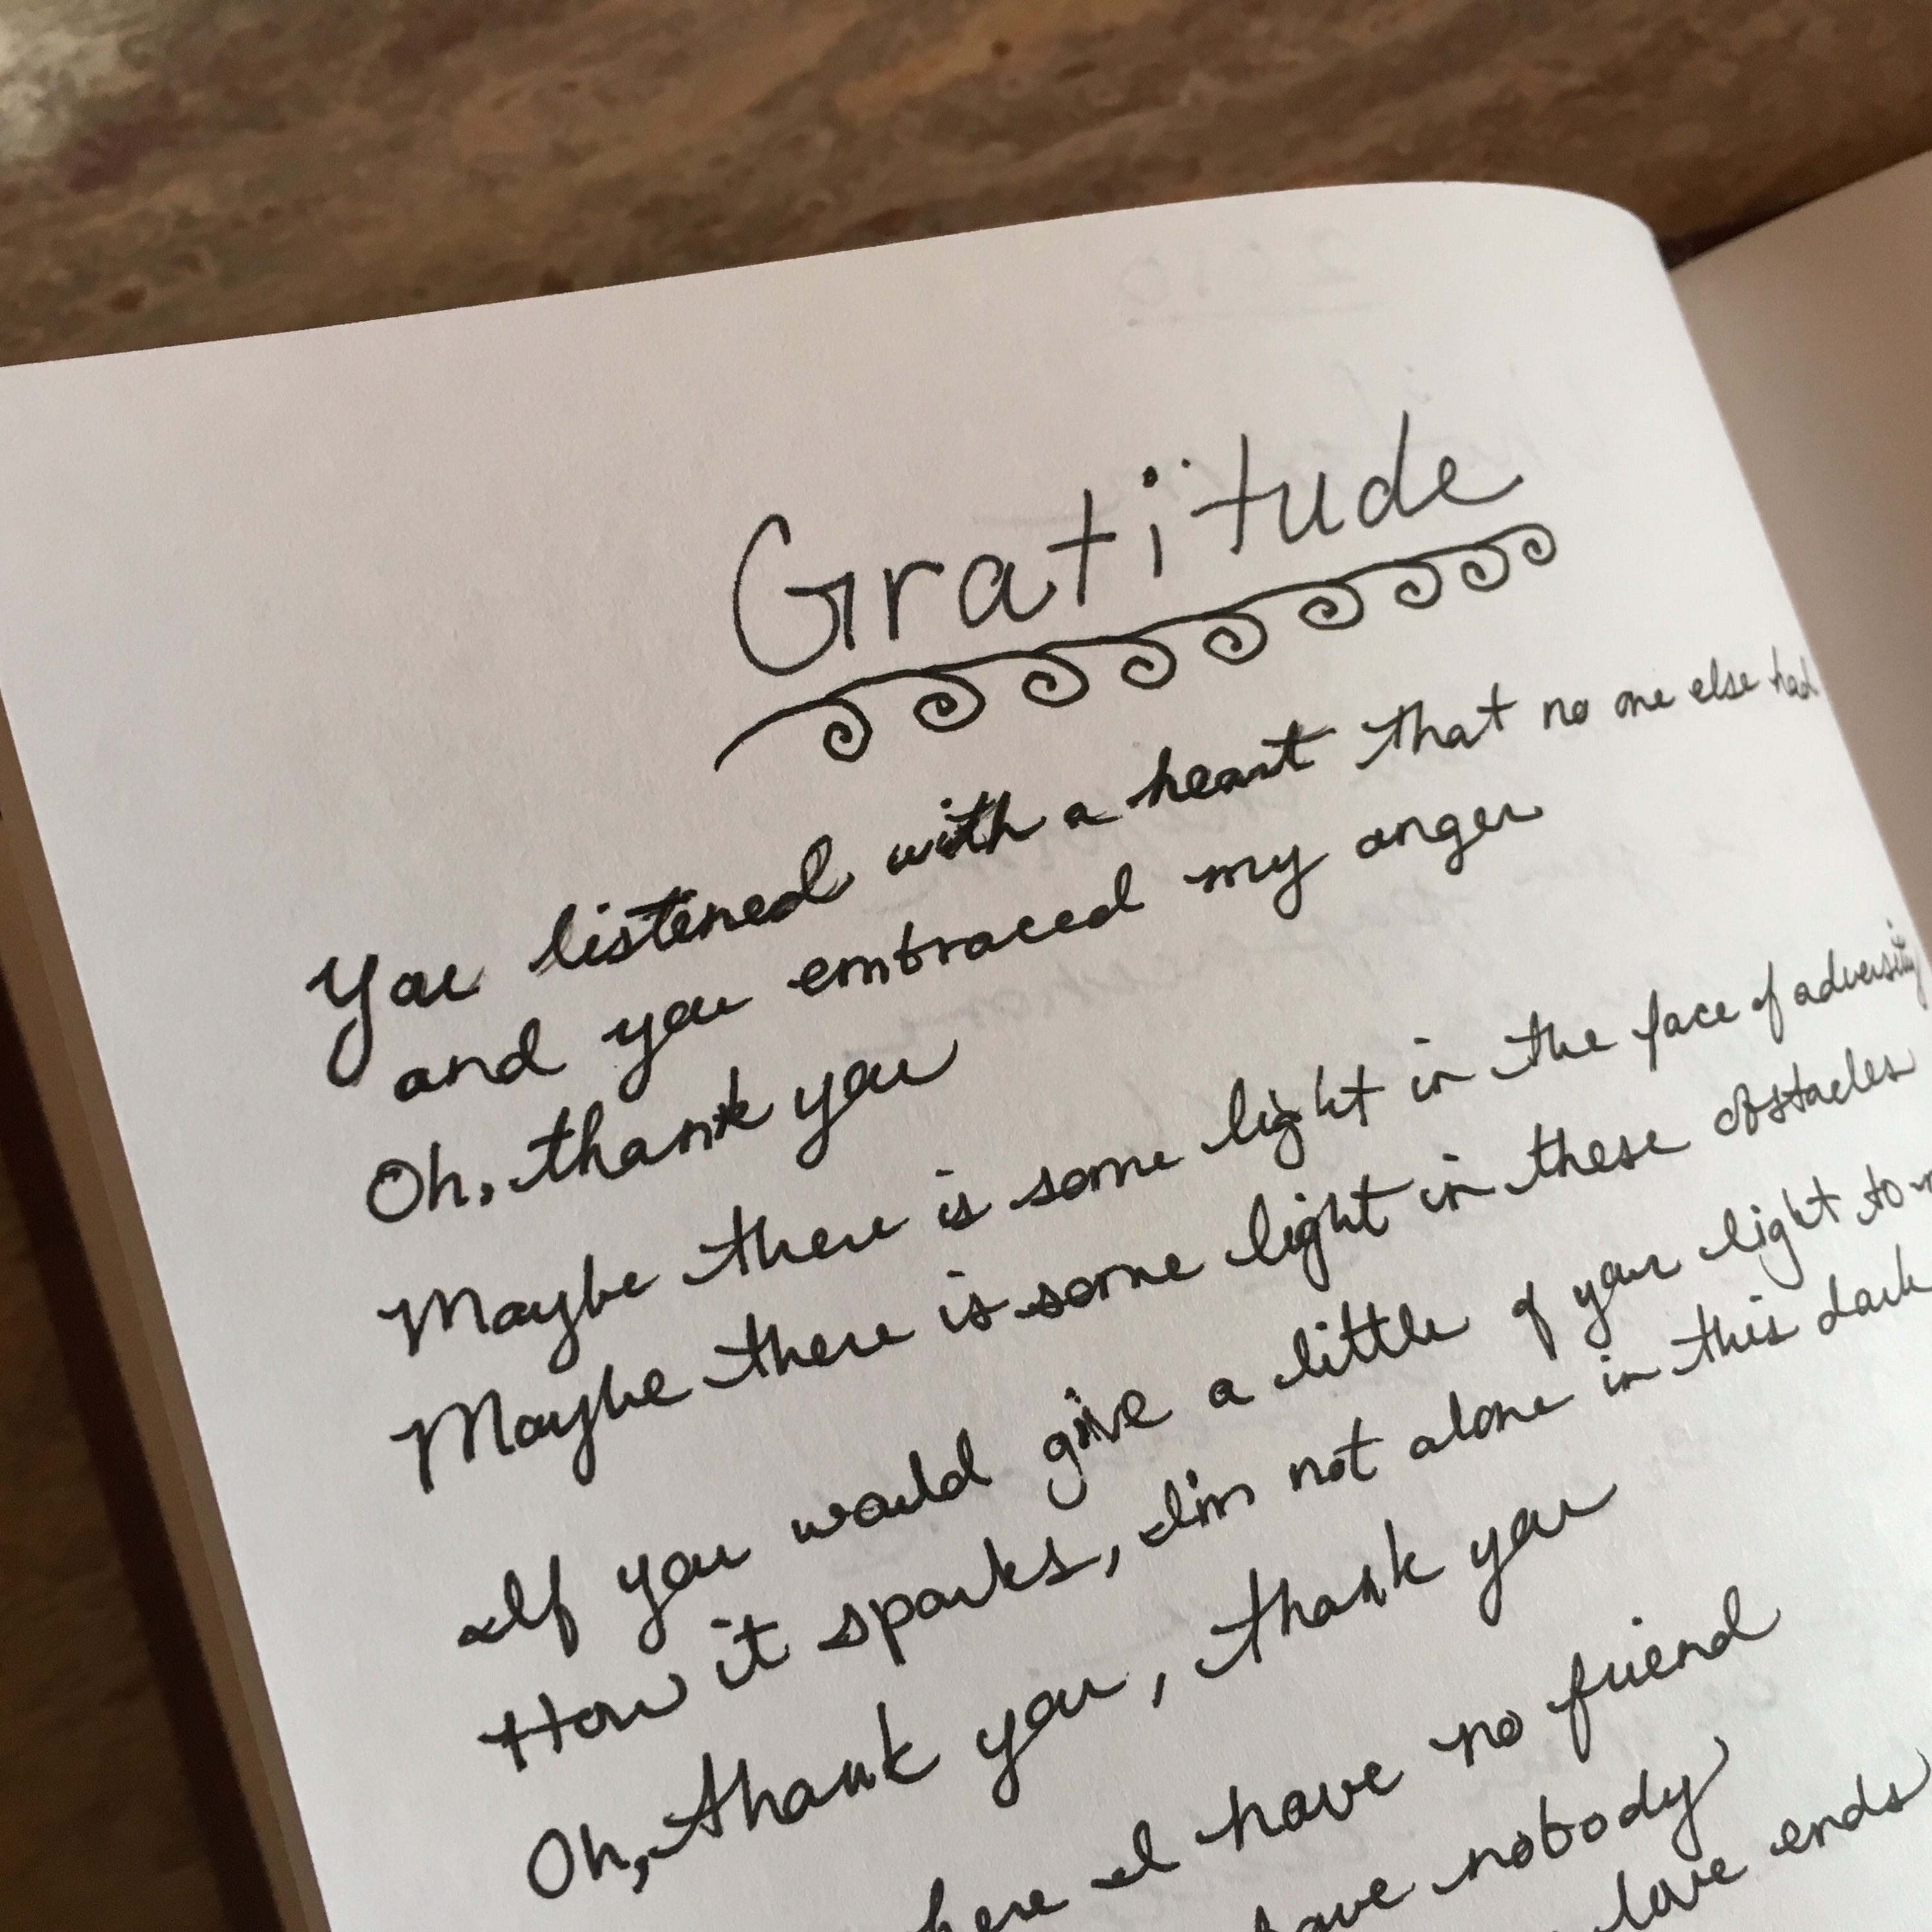 Gratitude
You listened with a heart that no one else had
and you embraced my anger
Oh, thank you
Maybe there is some light in the face of adversity
Maybe there is some light in these obstacles
If you would give a little of your light to
How it sparks, I'm not alone in this dark
Oh, thank you, thank you
here I have no friend
have nobody
love ends